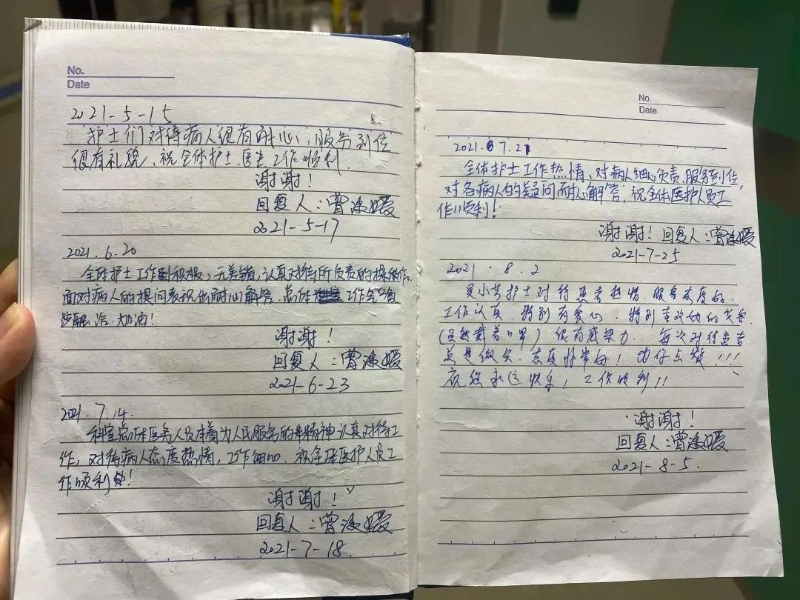 No.
Date
2021-5-15
护士们对待病人很有耐心，服务到位
很有礼貌，祝全体护士、医生工作顺利
谢谢！
回复人：曾
2021-5-17
2021.6.20
全体护士工作积极，认真对待所负责的
面对病人的提问表现出耐心解答，总体工作
谢谢！
回复人：曾
2021-6-23
2021.7.14
科室总体医务人员本着为人民服务的精神认真对待工
作，对待病人态度热情，工作细心，祝全体医护人员工
作顺利！
谢谢！
回复人：曾
2021-7-18
No.
Date
2021.7.21
全体护士工作热情、对病人细心负责，服务到位，
对各病人的疑问耐心解答，祝全体医护人员工
作顺利！
谢谢！回复人：曾
2021-7-25
2021.8.2
护士对待患者热情，服务
工作认真，特别有爱心，特别喜欢她的
（虽然戴着口罩）很有感染力，每次对待患者
都是做
祝您永远快乐，工作顺利！！
谢谢！
回复人：曾
2021-8-5